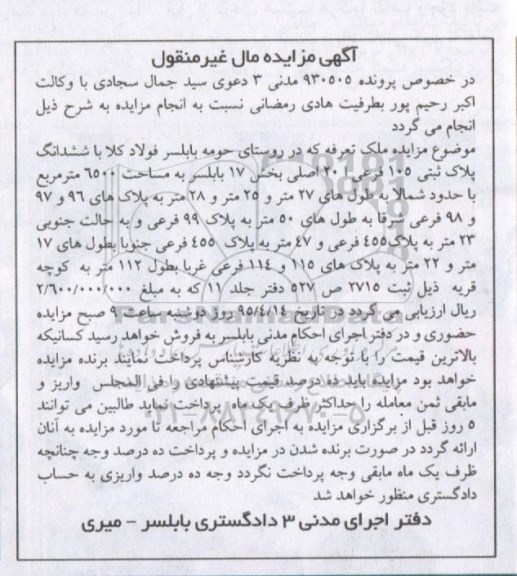 آگهی مزایده مال غیرمنقول
در خصوص پرونده ۹۳۰۵۰۵ مدنی ۳ دعوی سید جمال سجادی با وکالت
اکبر رحیم پور بطرفیت هادی رمضانی نسبت به انجام مزایده به شرح ذیل
انجام می گردد
موضوع مزایده ملک تعرفه که در روستای حومه بابلسر فولاد کلا با ششدانگ
پلاک ثبتی ۱۰۵ فرعی از ۲۰ اصلی بخش ۱۷ بابلسر به مساحت ۶۵۰۰ مترمربع
با حدود شمالا به طول های ۲۷ متر و ۲۵ متر و ۲۸ متر به پلاک های ۹۶ و ۹۷
و ۹۸ فرعی شرقا به طول های ۵۰ متر به پلاک ۹۹ فرعی و به حالت جنوبی
۲۳ متر به پلاک۴۵۵ فرعی و ۴۷ متر به پلاک ۴۵۵ فرعی جنوبا بطول های ۱۷
متر و ۲۲ متر به پلاک های ۱۱۵ و ۱۱۴ فرعی غربا بطول ۱۱۲ متر به کوچه
قریه ذیل ثبت ۲۷۱۵ ص ۵۲۷ دفتر جلد ۱۱ که به مبلغ ۲/۶۰۰/۰۰۰/۰۰۰
ریال ارزیابی می گردد در تاریخ ۹۵/۴/۱۴ روز دوشنبه ساعت ۹ صبح مزایده
حضوری و در دفتر اجرای احکام مدنی بابلسر به فروش خواهد رسید کسانیکه
بالاترین قیمت را با توجه به نظریه کارشناس پرداخت نمایند برنده مزایده
خواهد بود مزایده باید ده درصد قیمت پیشنهادی را فی المجلس واریز و
مابقی ثمن معامله را حداکثر ظرف یک ماه پرداخت نماید طالبین می توانند
۵ روز قبل از برگزاری مزایده به اجرای احکام مراجعه تا مورد مزایده به آنان
ارائه گردد در صورت برنده شدن در مزایده و پرداخت ده درصد وجه چنانچه
ظرف یک ماه مابقی وجه پرداخت نگردد وجه ده درصد واریزی به حساب
دادگستری منظور خواهد شد
دفتر اجرای مدنی ۳ دادگستری بابلسر - میری